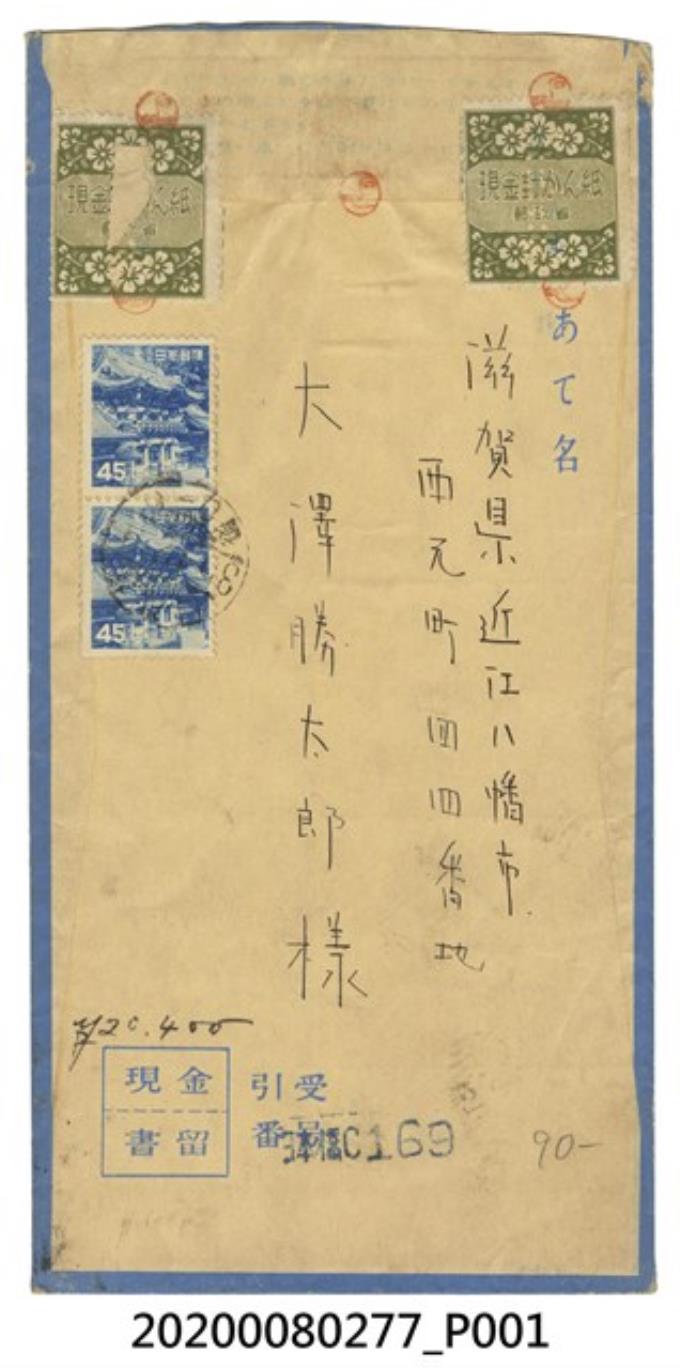 現金封かん紙
郵政省
現金封かん紙
郵政省
あて名
滋賀県近江八幡市
西元町四四番地
大澤勝太郎様
日本郵便
45
45
¥20.400
現金
書留
引受
番号
C169
90-
20200080277_P001